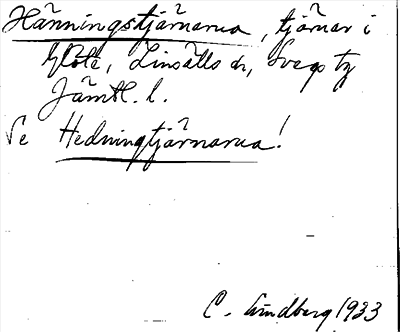 Hänningstjärnarna, tjärnar i
Glöte, Linsälls sn, Svegs tg
Jämtl. l.
Se Hedningtjärnarna!
C. Lundberg 1933